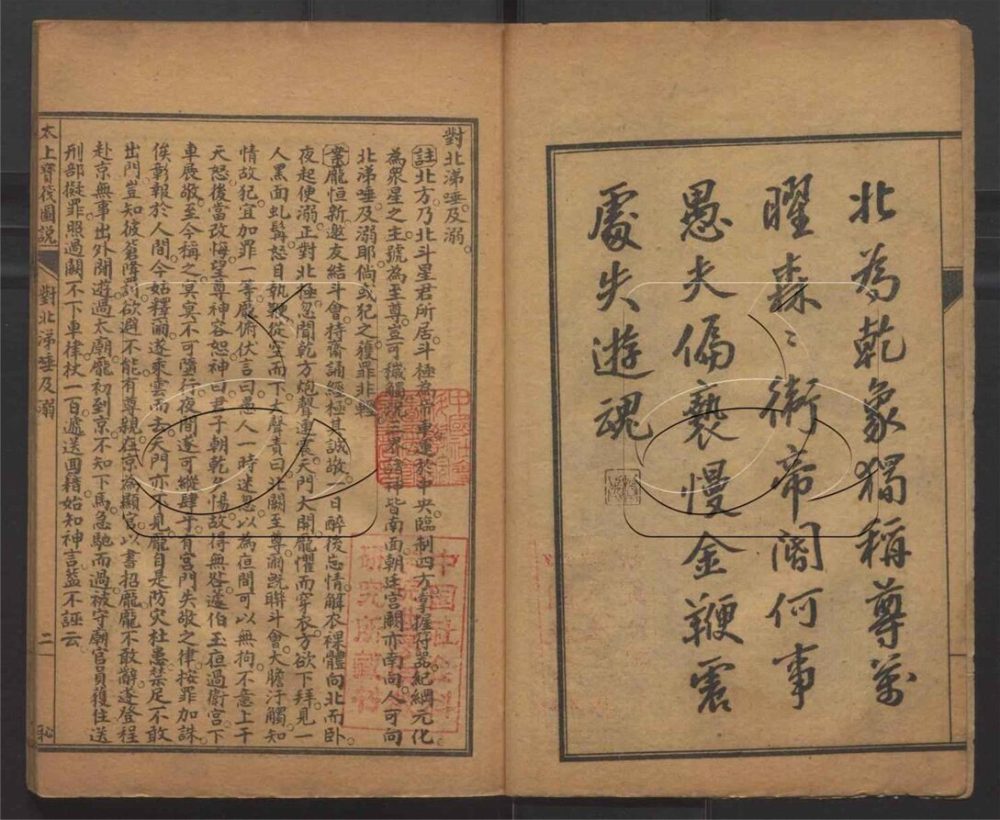 北為乾象獨稱尊萬
曜森〻衛帝閽何事
愚夫偏褻慢金鞭震
處失遊魂
對北涕唾及溺。
註北方乃北斗星君所居斗極為帝車運於中央臨制四方掌握符器紀綱元化
為衆星之主號為至尊豈可穢觸況三界諸神皆南面朝廷宮闕亦南向人可向
北涕唾及溺耶倘或犯之獲罪非輕
案龐恒新邀友結斗會持齋誦經極其誠敬一日醉後忘情解衣裸體向北而卧
夜起便溺正對北極忽聞乾方炮聲連震天門大開龐懼而穿衣方欲下拜見一
人黑面虬髯怒目執鞭從空而下大聲責曰北闕至尊爾既聨斗會大膽汙觸知
情故犯宜加罪一等龐俯伏言曰愚人一時迷思以為夜間可以無拘不意上干
天怒後當改悔望尊神容恕神曰君子朝乾夕惕故得無咎蘧伯玉夜過衛宮下
車展敬至今稱之冥冥不可墮行夜間遂可縱肆乎有宮門失敬之律按罪加誅
俟彰報於人間今姑釋爾遂乘雲而去天門亦不見龐自是防灾杜患禁足不敢
出門豈知彼蒼降罰欲避不能有尊親在京為顯官以書招龐龐不敢辭遂登程
赴京無事出外閒遊過太廟龐初到京不知下馬急馳而過被守廟官員獲住送
刑部擬罪照過闕不下車律杖一百遞送回籍始知神言益不誣云
太上寶筏圖說
對北涕唾及溺
二